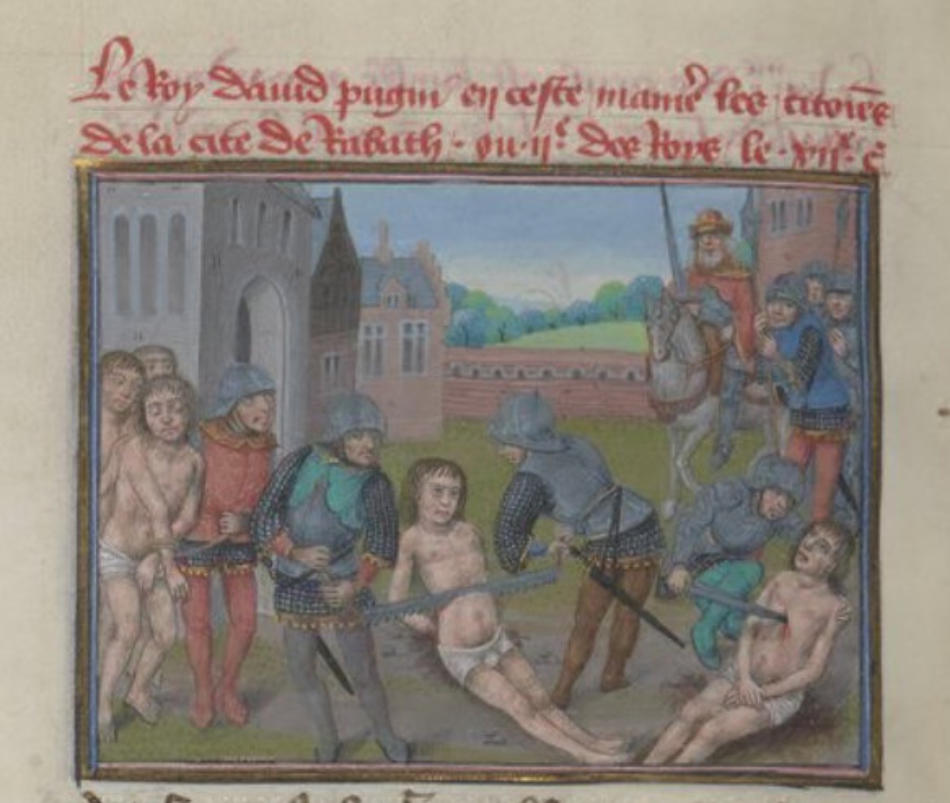 Le Roy dauid pugni en ceste manieᷣ les citoiēs
de la cite de Rabath · ou · ii͛ · des Roys le · xii͛ · c̄